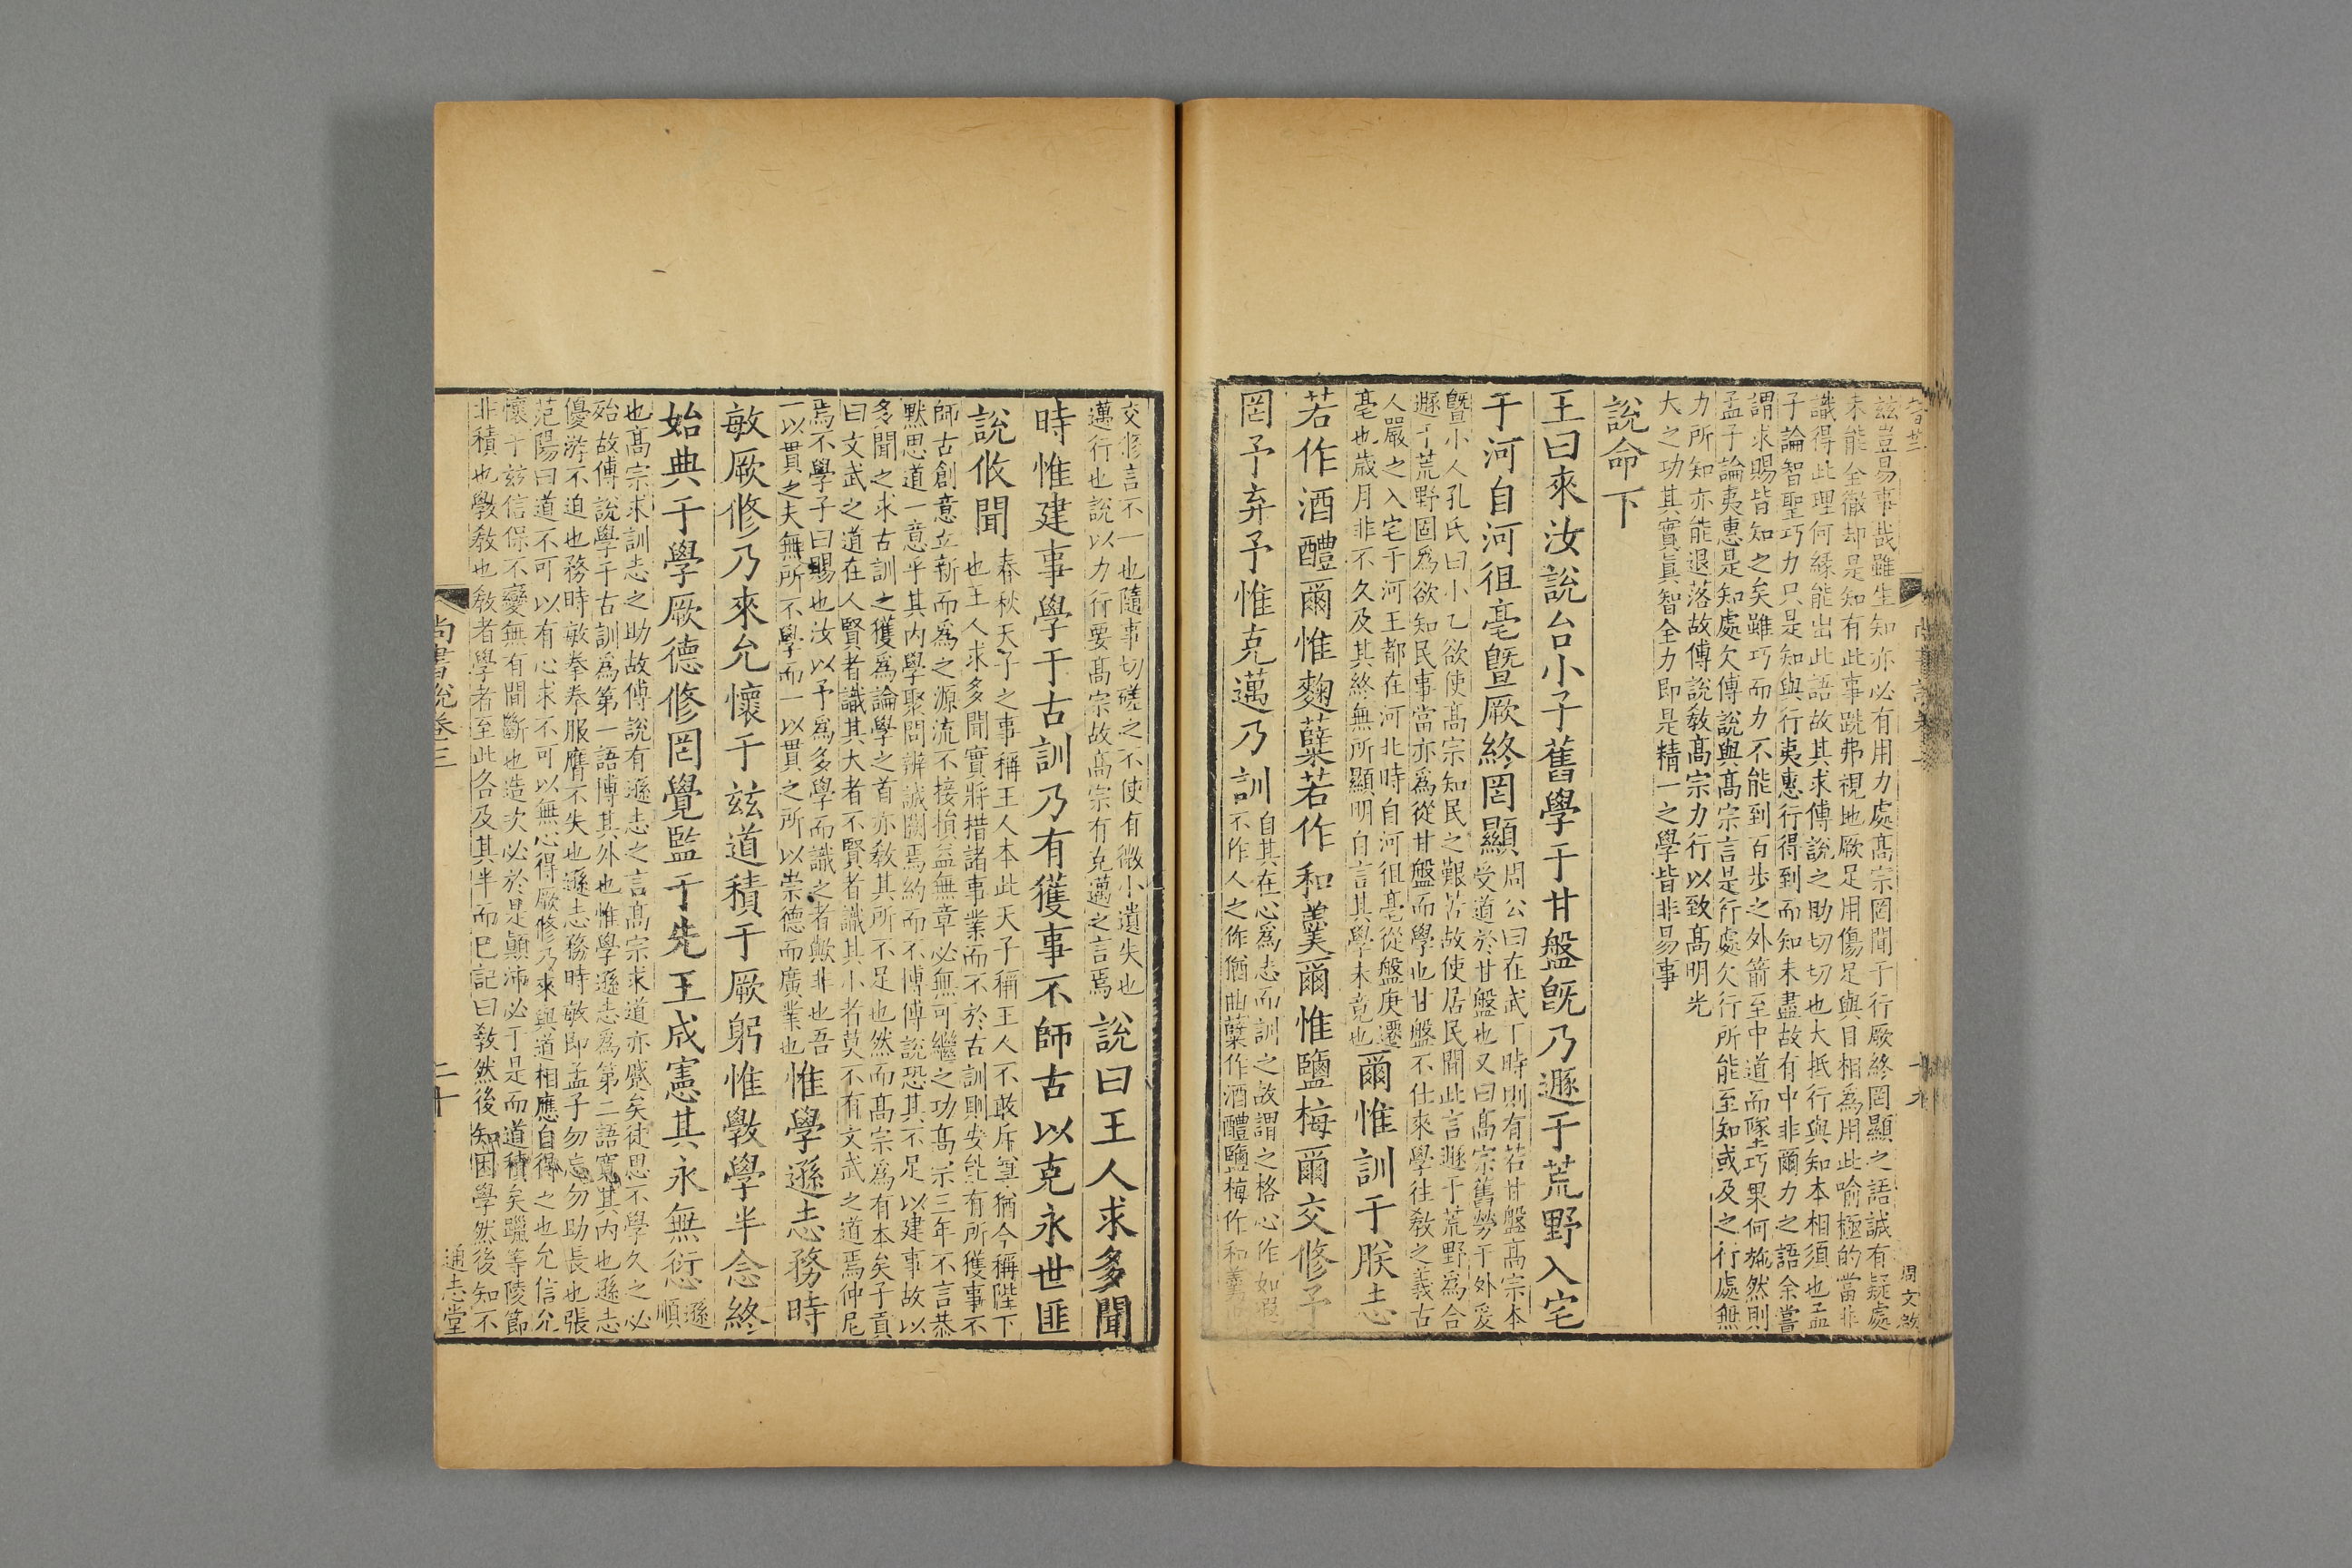 兹豈易事哉雖生知亦必有用力處髙宗罔聞于行厥終罔顯之語誠有疑處
未能全徹却是知有此事跣弗視地厥足用傷足與目相爲用此喻極的當非
識得此理何縁能出此語故其求傅說之助切切也大抵行與知本相須也孟
子論智聖巧力只是知與行夷惠行得到而知未盡故有中非爾力之語余嘗
謂求賜皆知之矣雖巧而力不能到百步之外箭至中道而隊巧果何施然則
孟子論夷惠是知處欠傅說與髙宗言是行處欠行所能至知或及之行處無
力所知亦能退落故傅說教髙宗力行以致髙明光
大之功其實眞智全力即是精一之學皆非易事
說命下
王曰來汝說台小子舊學于甘盤旣乃遯于荒野入宅
于河自河徂亳曁厥終罔顯
周公曰在武丁時則有若甘盤髙宗本
受道於甘盤也又曰髙宗舊勞于外爰
曁小人孔氏曰小乙欲使髙宗知民之艱苦故使居民間此言遯于荒野爲合
遯于荒野固爲欲知民事當亦爲從甘盤而學也甘盤不仕來學往教之義古
人嚴之入宅于河王都在河北時自河徂亳從盤庚遷
亳也歲月非不久及其終無所顯明自言其學未竟也
爾惟訓于朕志
若作酒醴爾惟麴蘖若作和羹爾惟鹽梅爾交修予
罔予弃予惟克邁乃訓
自其在心爲志而訓之故謂之格心作如
不作人之作猶曲蘖作酒醴鹽梅作和羹
交修言不一也隨事切磋之不使有微小遺失也
邁行也說以力行要髙宗故髙宗有克邁之言焉
說曰王人求多聞
時惟建事學于古訓乃有獲事不師古以克永世匪
說攸聞
春秋天子之事稱王人本此天子稱王人不敢斥尊猶今稱陛下
也王人求多聞實將措諸事業而不於古訓則安能有所獲事不
師古創意立新而爲之源流不接損益無章必無可繼之功髙宗三年不言恭
默思道一意乎其内學聚問辨誠闕焉約而不博傅說恐其不足以建事故以
多聞之求古訓之獲爲論學之首亦教其所不足也然而髙宗爲有本矣子貢
曰文武之道在人賢者識其大者不賢者識其小者莫不有文武之道焉仲尼
焉不學子曰賜也汝以予爲多學而識之者歟非也吾
一以貫之夫無所不學而一以貫之所以崇德而廣業也
惟學遜志務時
敏厥修乃來允懷于兹道積于厥躬惟斆學半念終
始典于學厥德修罔覺監于先王成憲其永無愆
遜
順
也髙宗求訓志之助故傅說有遜志之言髙宗求道亦蹙矣徒思不學久之必
殆故傅說學于古訓爲第一語博其外也惟學遜志爲第二語實其内也遜志
優游不迫也務時敏拳拳服膺不失也遜志務時敏即孟子勿忘勿助長也張
范陽曰道不可以有心求不可以無心得厥修乃來與道相應自得之也允信允
懷于兹信保不變無有間斷也造次必於是顚沛必于是而道積矣躐等陵節
非積也斆教也教者學者至此各及其半而已記曰教然後知困學然後知不
通志堂
尚書說卷三
二十